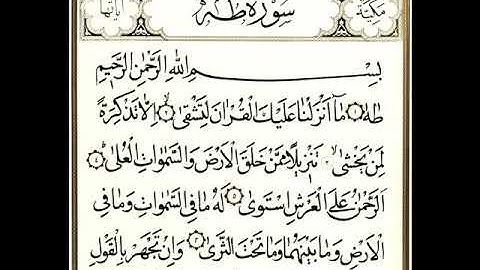 مكية سورة طه آياتها
بسم الله الرحمن الرحيم
طه ١ ما أنزلنا عليك القرآن لتشقى ٢ إلا تذكرة
لمن يخشى ٣ تنزيلا ممن خلق الأرض والسموات العلى ٤
الرحمن على العرش استوى ٥ له ما في السموات وما في
الأرض وما بينهما وما تحت الثرى ٦ وإن تجهر بالقول